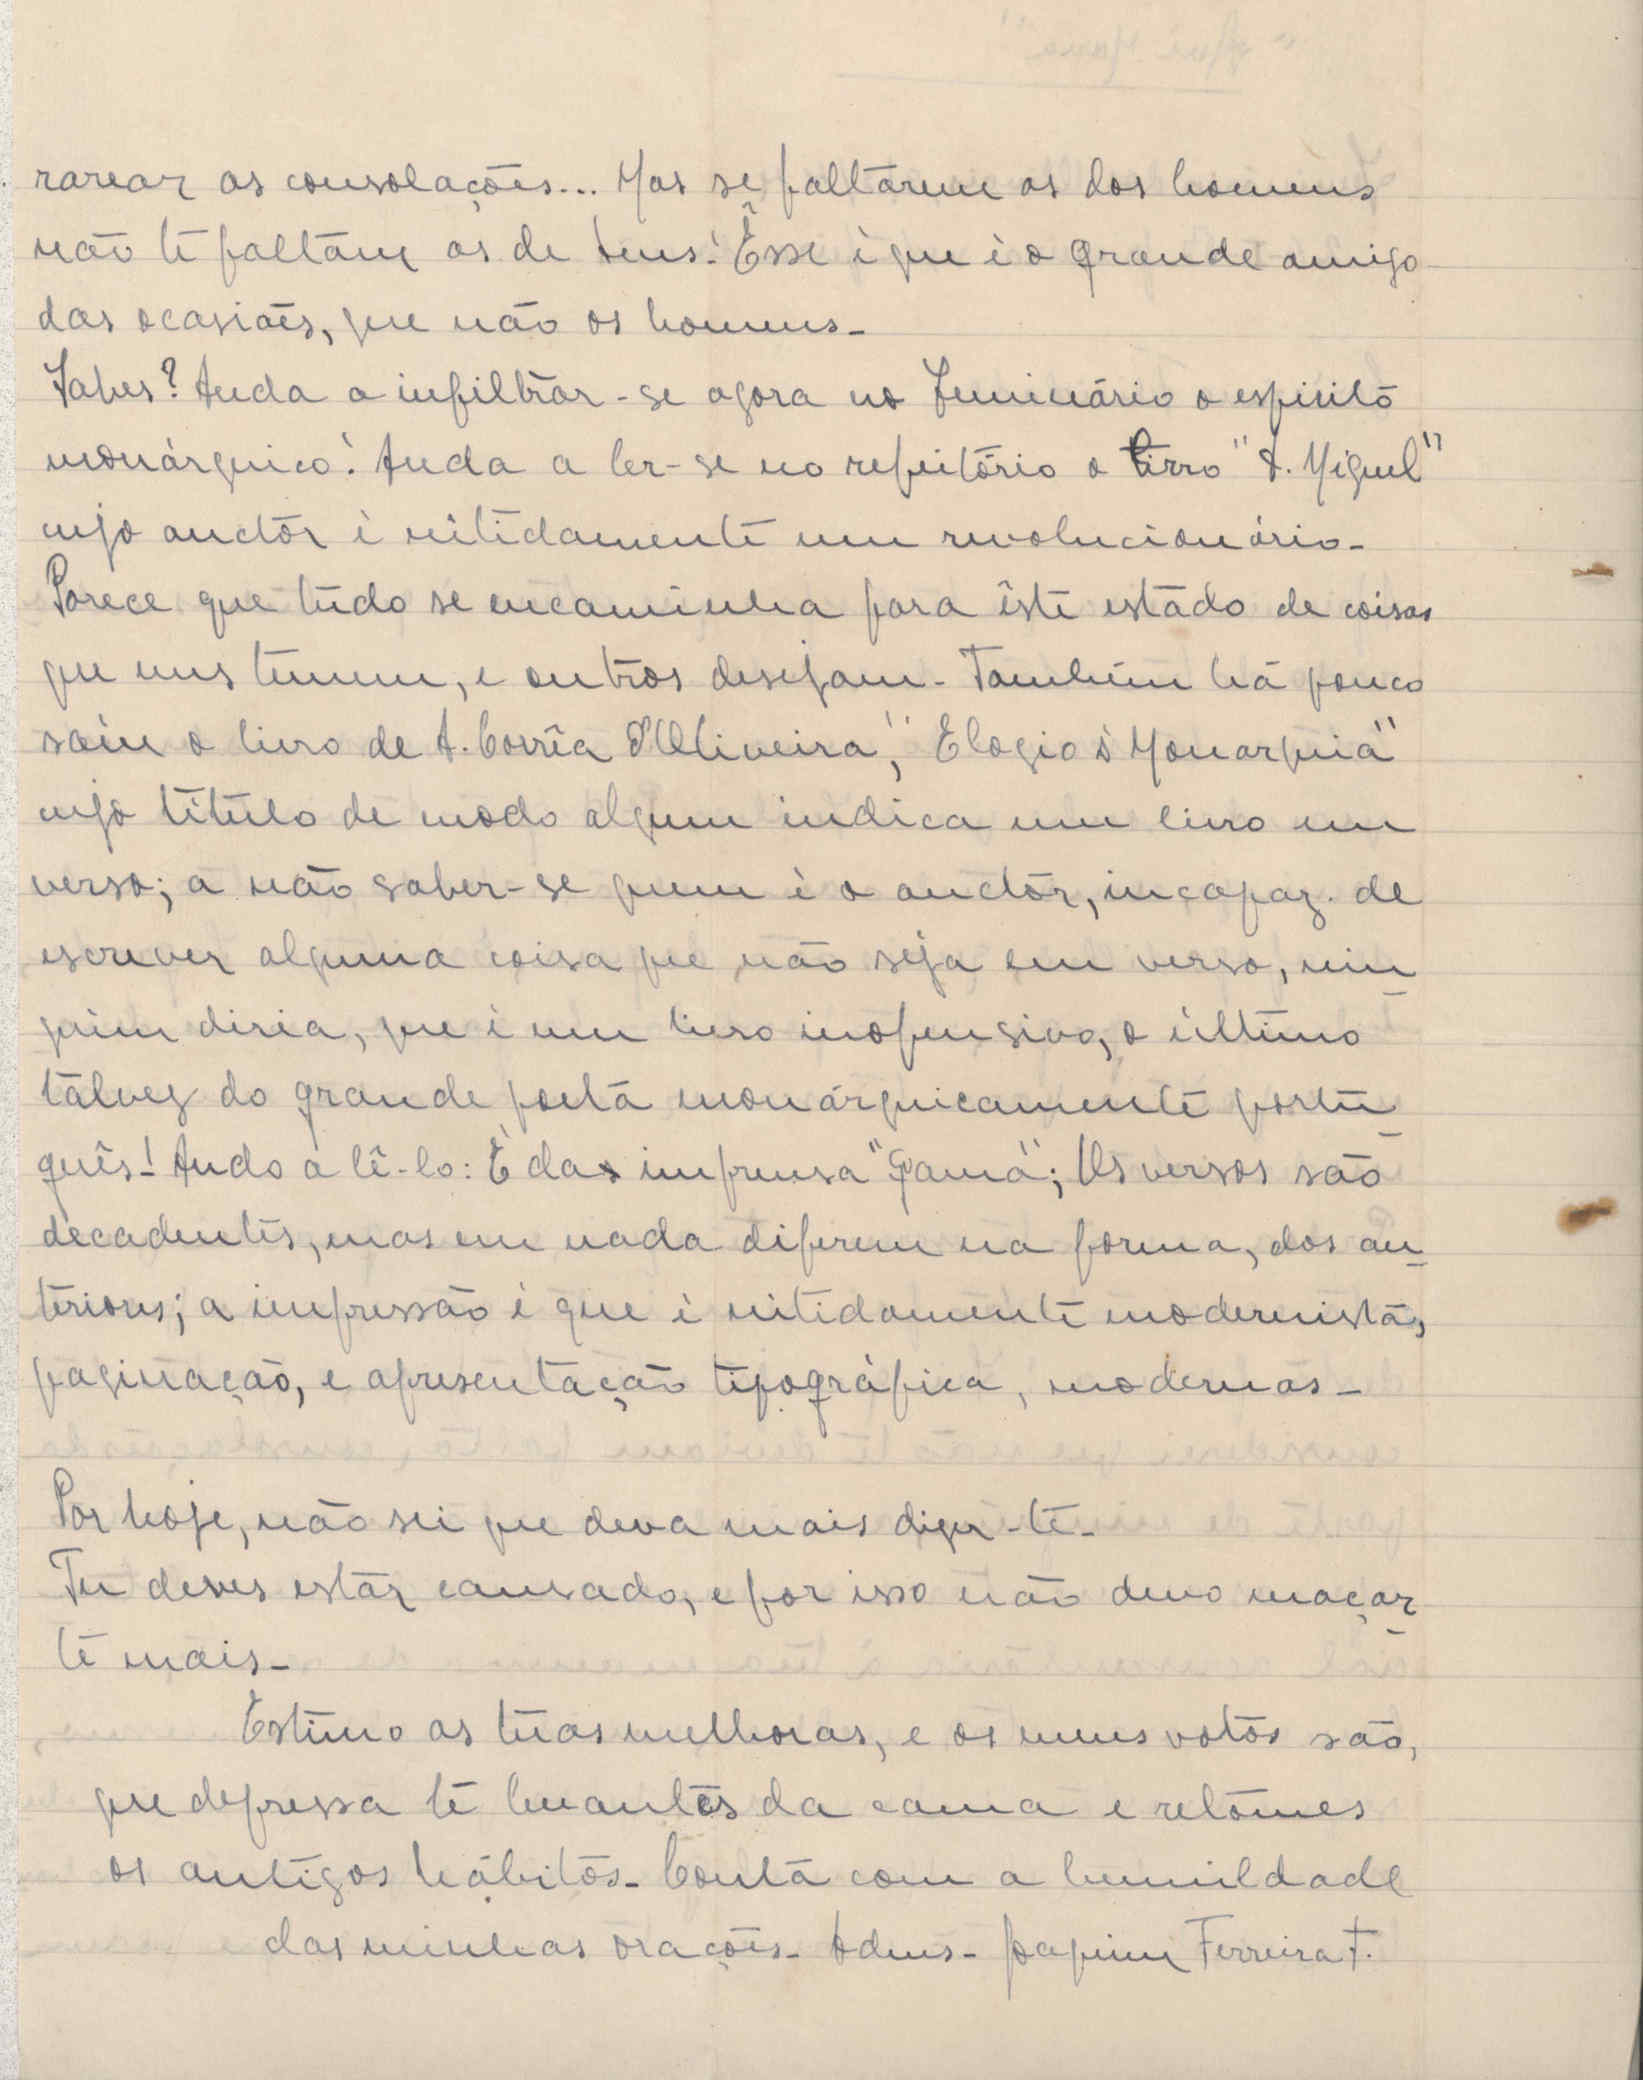 rarear as consolações... Mas se faltarem as dos homens
não te faltam as de Deus! Êsse é que é o grande amigo
das ocasiões, que não os homens -
Sabes? Anda a infiltrar-se agora no Seminário o espírito
monárquico! Anda a ler-se no refeitório o livro "D. Miguel"
cujo auctor é nitidamente um revolucionário -
Parece que tudo se encaminha para êste estado de coisas
que uns temem, e outros desejam - Também há pouco
saíu o livro de A. Corrêa d'Oliveira, "Elogio à Monarquia"
cujo título de modo algum indica um livro em
verso; a não saber-se quem é o auctor, incapaz de
escrever alguma coisa que não seja em verso, nin
guém diria, que é um livro inofensivo, o último
talvez do grande poeta monárquicamente portu
guês! Ando a lê-lo: É da imprensa "Gama"; Os versos são
decadentes, mas em nada diferem na forma, dos an
teriores; a impressão é que é nitidamente modernista,
paginação, e apresentação tipográfica, modernas -
Por hoje, não sei que deva mais dizer-te -
Tu deves estar cansado, e por isso não devo maçar
te mais -
Estimo as tuas melhoras, e os meus votos são,
que depressa te levantes da cama e retomes
os antigos hábitos - Conta com a humildade
das minhas orações - Adeus - Joaquim Ferreira T.